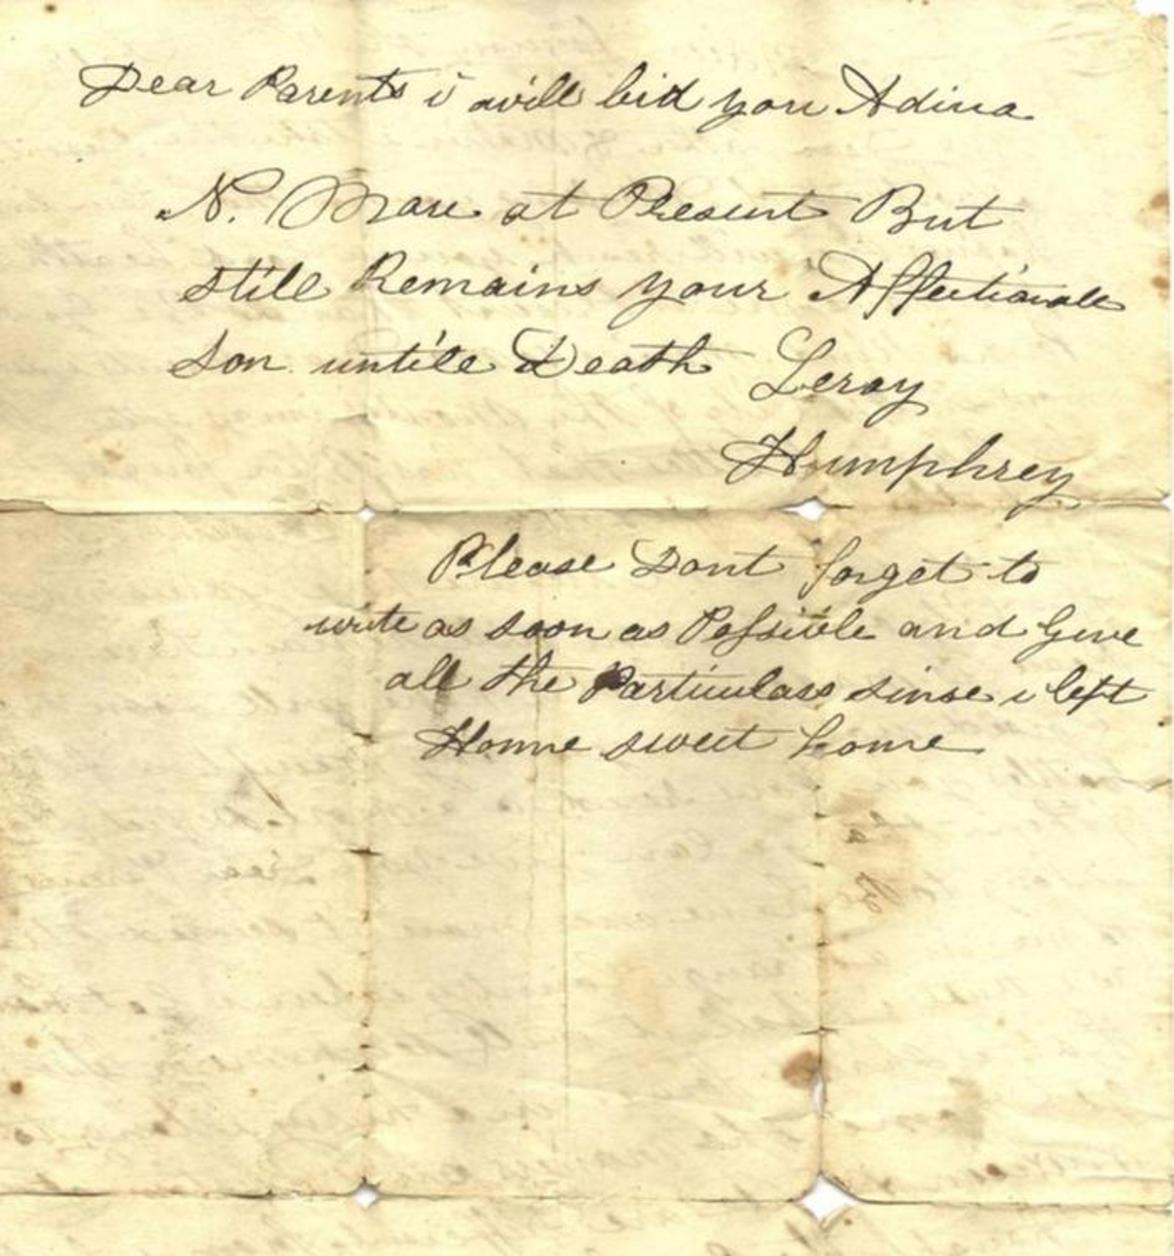 Dear Parents i will bid you Adina
N. More at Present But
still Remains your Affectionate
son untile Death Leroy
Humphrey
Please Dont forget to
write as soon as Possible and Give
all the Particulars sinse i left
Home sweet home